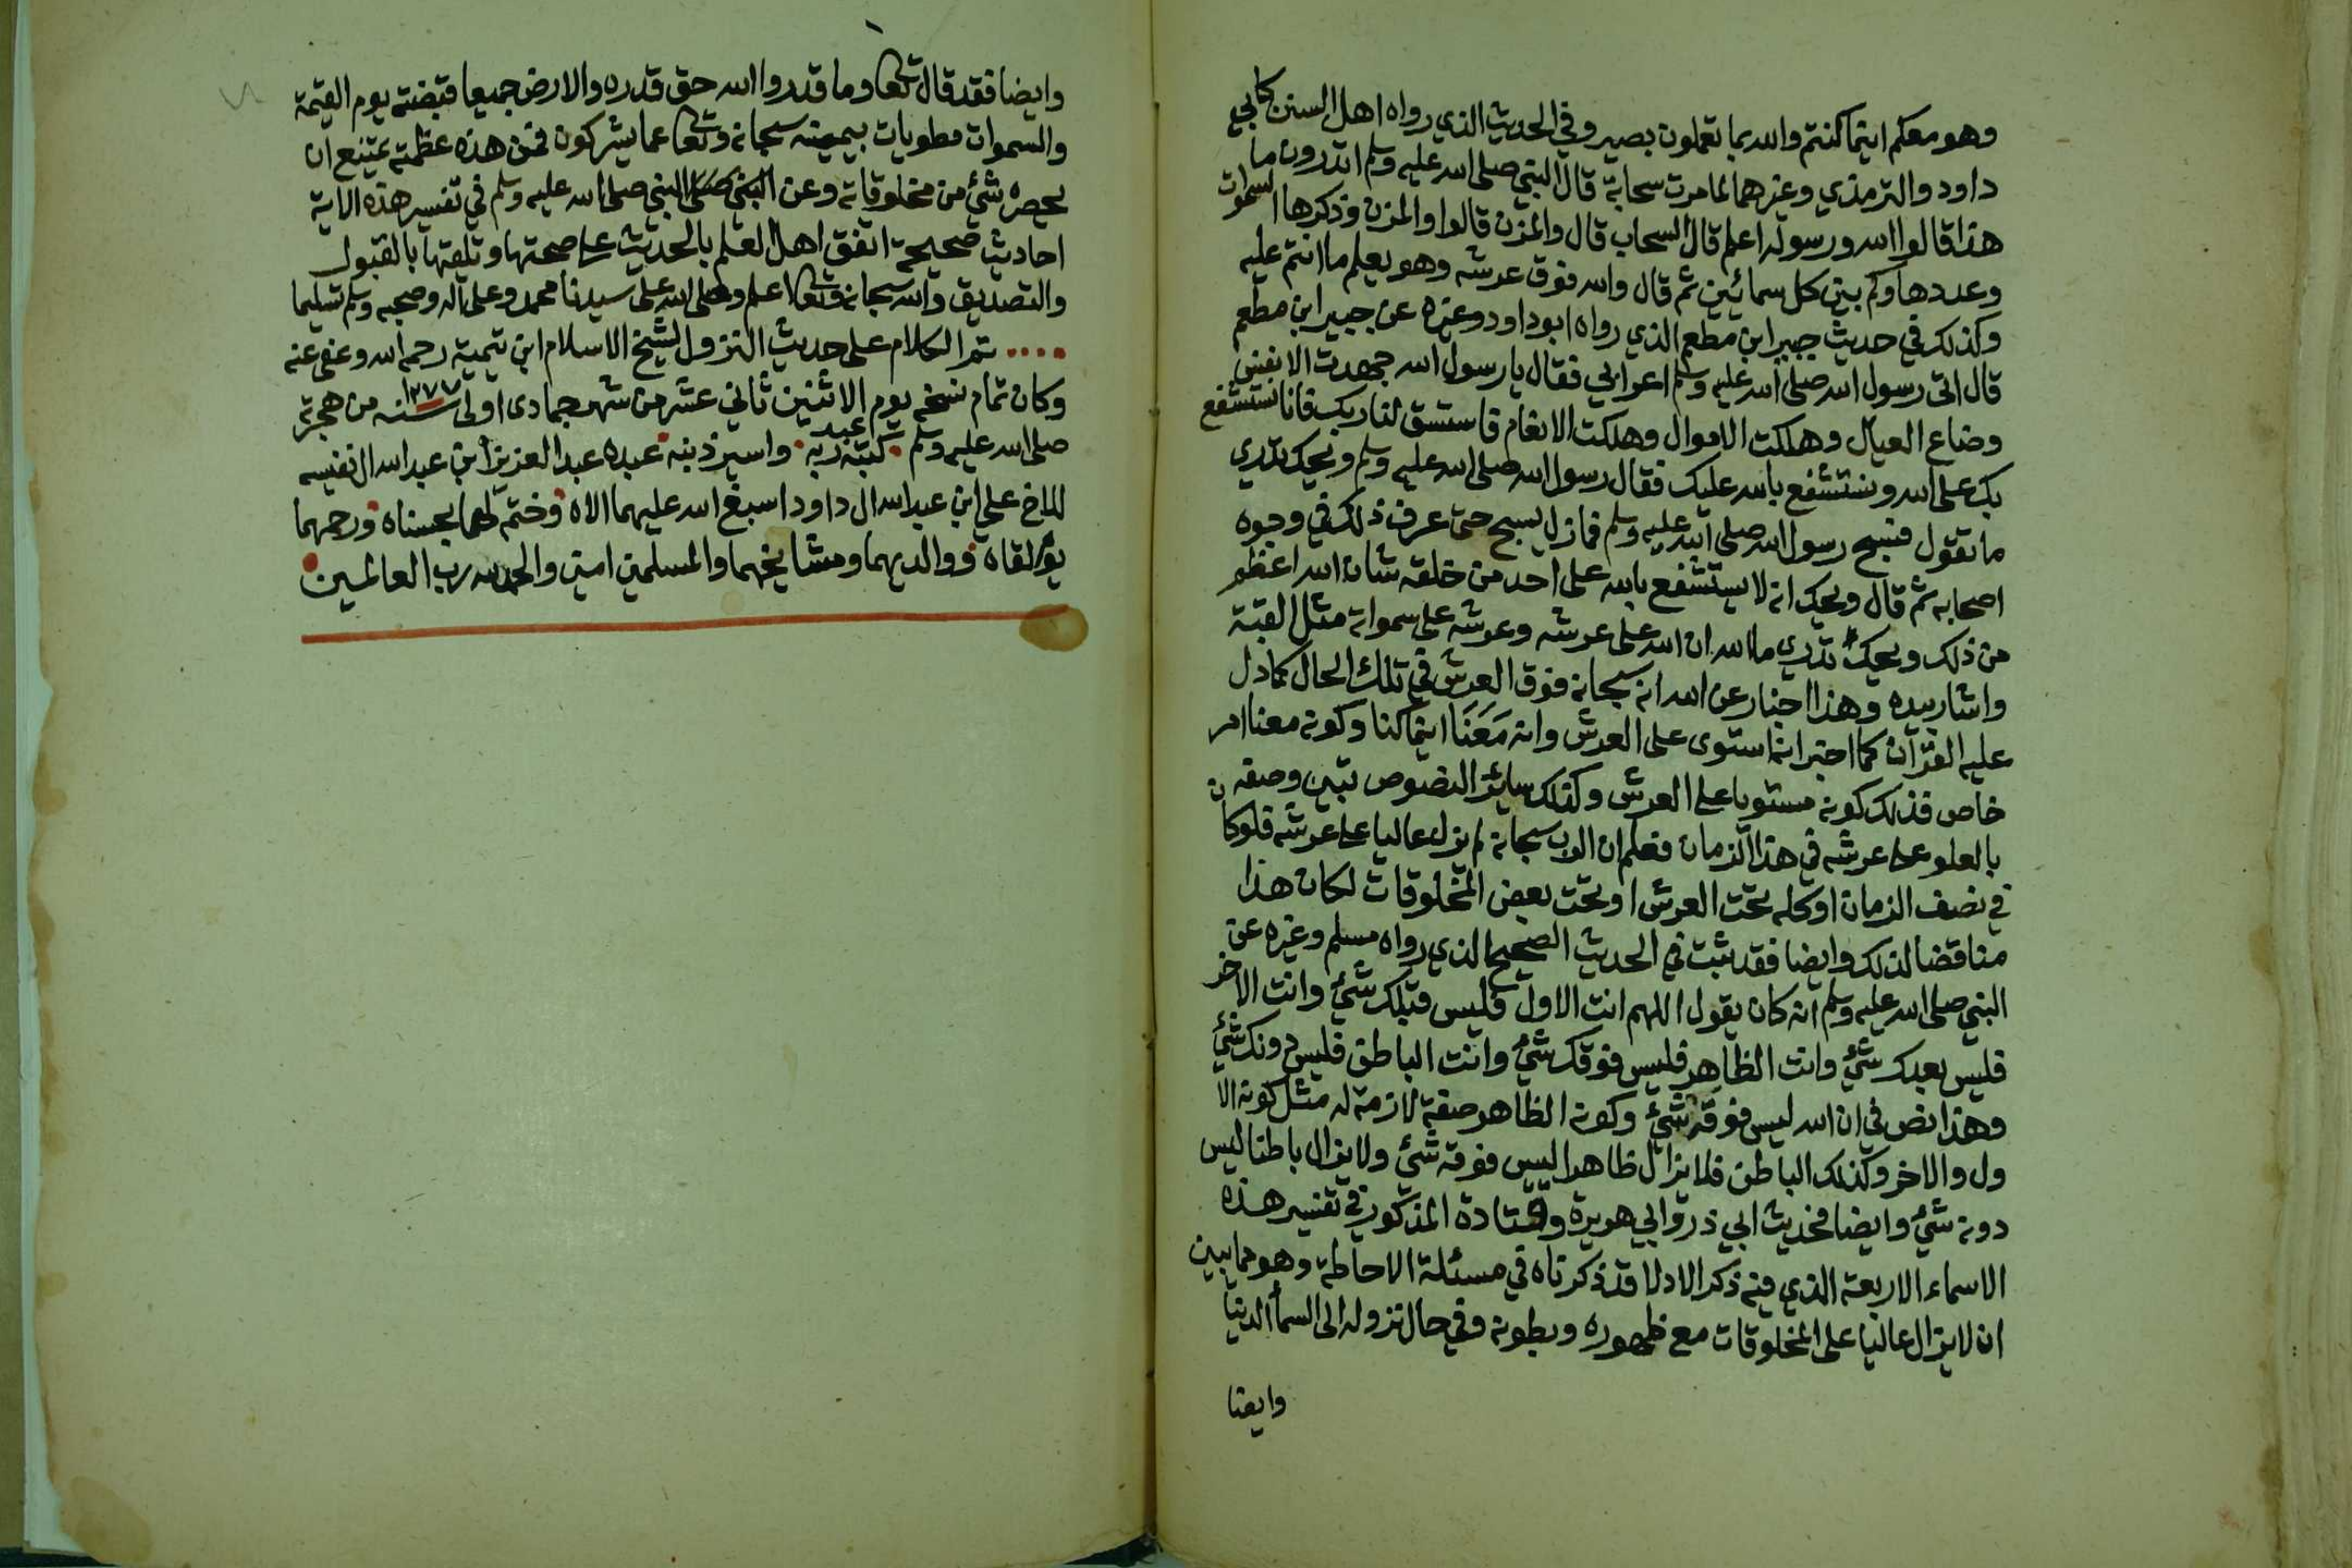 وهو معكم اينما كنتم والله بما تعملون بصير وفي الحديث الذي رواه اهل السنن كابي
داود والترمذي وغيرهما لما مرت سحابة قال النبي صلى الله عليه وسلم اتدرون ما
هذا قالوا الله ورسوله اعلم قال السحاب قال والمزن قالوا والمزن وذكرها السموات
وعددها وكم بين كل سمائين ثم قال والله فوق عرشه وهو يعلم ما انتم عليه
وكذلك في حديث جبير ابن مطعم الذي رواه ابو داود وغيره عن جبير ابن مطعم
قال اتى رسول الله صلى الله عليه وسلم اعرابي فقال يا رسول الله جهدت الانفس
وضاع العيال وهلكت الاموال وهلكت الانعام فاستسق لنا ربك فانا نستشفع
بك على الله ونستشفع بالله عليك فقال رسول الله صلى الله عليه وسلم ويحك تدري
ما تقول فسبح رسول الله صلى الله عليه وسلم فمازل يسبح حتى عرف ذلك في وجوه
اصحابه ثم قال ويحك انه لا يستشفع بالله على احد من خلقه شان الله اعظم
من ذلك ويحك تدري ما الله ان الله على عرشه وعرشه على سمواته مثل القبة
واشار بيده وهذا اخبار عن الله انه سبحانه فوق العرش في تلك الحال كما دل
عليه القرآن كما اخبر انه استوى على العرش وانه مَعَنَا اينما كنا وكونه معنا امر
خاص فذلك كونه مستويا على العرش وكذلك سائر النصوص تبين وصفه
بالعلو على عرشه في هذا الزمان فعلم ان الرب سبحانه لم يزل عاليا على عرشه فلو كان
في نصف الزمان او كله تحت العرش او تحت بعض المخلوقات لكان هذا
مناقضا لذلك وايضا فقد ثبت في الحديث الصحيح الذي رواه مسلم وغيره عن
النبي صلى الله عليه وسلم انه كان يقول اللهم انت الاول فليس قبلك شيء وانت الاخر
فليس بعدك شيء وانت الظاهر فليس فوقك شيء وانت الباطن فليس دونك شيء
وهذا نص في ان الله ليس فوقه شيء وكونه الظاهر صفة لازمة له مثل كونه الا
ول والاخر وكذلك الباطن فلا يزال ظاهرا ليس فوقه شيء ولا يزال باطنا ليس
دونه شيء وايضا فحديث ابي ذر وابي هريرة وقتادة المذكور في تفسير هذه
الاسماء الاربعة الذي فيه ذكر الادلا قد ذكرناه في مسئلة الاحاطة وهو مما يبين
ان لا يزال عاليا على المخلوقات مع ظهوره وبطونه وفي حال نزوله الى السما الدنيا
وايضا
وايضا فقد قال تعالى وما قدروا الله حق قدره والارض جميعا قبضته يوم القيمة
والسموات مطويات بيمينه سبحانه وتعالى عما يشركون فمن هذه عظمته يمتنع ان
يحصره شيء من مخلوقاته وعن النبي صلى النبي صلى الله عليه وسلم في تفسير هذه الاية
احاديث صحيحة اتفق اهل العلم بالحديث على صحتها وتلقتها بالقبول
والتصديق والله سبحانه وتعالى اعلم وصلى الله على سيدنا محمد وعلى اله وصحبه وسلم تسليما
.... تم الكلام على حديث النزول لشيخ الاسلام ابن تيمية رحمه الله وعفى عنه
وكان تمام نسخه يوم الاثنين ثاني عشر من شهر جمادى اولى سنة ١٢٧٧ من هجرته
صلى الله عليه وسلم كتبه عبد ربه واسير ذنبه عبده عبد العزيز ابن عبد الله ال نفيسه
للاخ علي ابن عبد الله ال داود اسبغ الله عليهما الاه وختم لهما بحسناه ورحمهما
يوم لقاه ووالديهما ومشايخهما والمسلمين امين والحمد لله رب العالمين